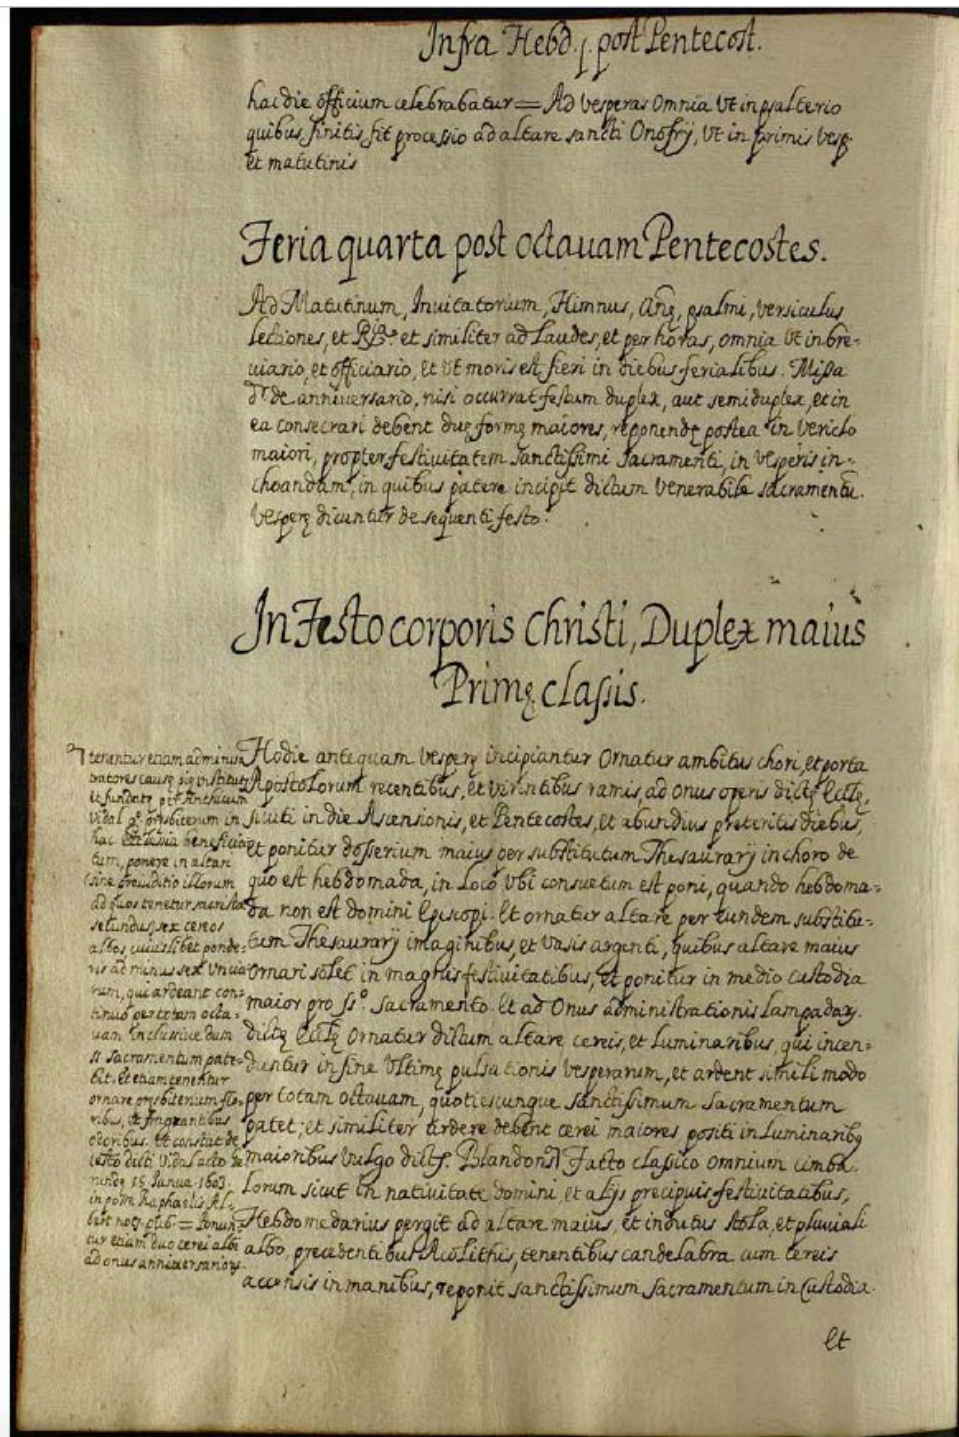 Infra Hebd. j. post Pentecost.
hac die officium celebrabatur = Ad vesperas omnia vt in psalterio
quibus finitis fit processio ad altare sancti Onofrij, vt in primis vesp.
et matutinis
Feria quarta post octauam Pentecostes.
Ad Matutinum, Inuitatorium, Himnus, Anę, psalmi, versiculus
lectiones, et et similiter ad Laudes, et per horas, omnia vt in bre-
uiario, et officiario, et vt moris est fieri in diebus ferialibus. Missa
dr de anniversario, nisi occurrat festum duplex, aut semiduplex, et in
ea consecrari debent duę formę maiores, reponendę postea in vericlo
maiori, propter festiuitatem sanctissimi sacramenti, in vesperis in-
choandam, in quibus patere incipit dictum venerabile sacramentū.
vesperę dicuntur de sequenti festo.
In Festo corporis Christi, Duplex maius
Primę classis.
Hodie antequam vesperę incipiantur ornatur ambitus chori, et porta
Apostolorum recentibus, et virentibus ramis, ad onus operis dictę Ecclę,
sicuti in die Ascensionis, et Pentecostes, et abundius preteritis diebus,
et ponitur dosserium maius per substitutum Thesaurarij in choro de
quo est hebdomada, in loco vbi consuetum est poni, quando hebdoma-
da non est domini Episcopi. Et ornatur altare per eundem substitu-
tum Thesaurarij imaginibus, et vasis argenti, quibus altare maius
ornari solet in magnis festiuitatibus, et ponitur in medio custodia
maior pro ss.º sacramento. Et ad onus administrationis lampadarū.
dictę Ecclę ornatur dictum altare cereis, et luminaribus, qui incen-
duntur in fine vltimę pulsationis vesperarum, et ardent simili modo
per totam octauam, quotiescunque sanctissimum sacramentum
patet; et similiter ardere debent cerei maiores positi in luminaribꝫ
maioribus vulgo dictis Blandons. Facto classico omnium cimba-
lorum sicut in natiuitate domini et alijs precipuis festiuitatibus,
Hebdomedarius pergit ad altare maius, et indutus stola, et pluuiali
albo, precedentibus Acolithis, tenentibus candelabra cum cereis
accensis in manibus, reponit sanctissimum sacramentum in custodia.
Et
tenentur etiam adminis-
tratores causę pię institutę
et fundatę per Anthicum
Vidal presbiterum in
hac Ecclesia beneficia-
tum, ponere in altari
(sine preiuditio illorum
ad quos tenetur
sex cereos
albos, cuiuslibet ponde-
ris ad minus sex vncia-
rum, qui ardeant con-
tinuo per totam octa-
uam inclussiue dum
ss sacramentum pate-
bit. Et etiam tenentur
ornare presbiterium flo-
ribus, et fragrantibus
odoribus. Vt constat de
dicti Vidal acto Ge-
rundę 15 Janua. 1603.
in posse Raphaelis Al-
bert not. = Ponun-
tur etiam duo cerei albi
ad onus anniversariorū.